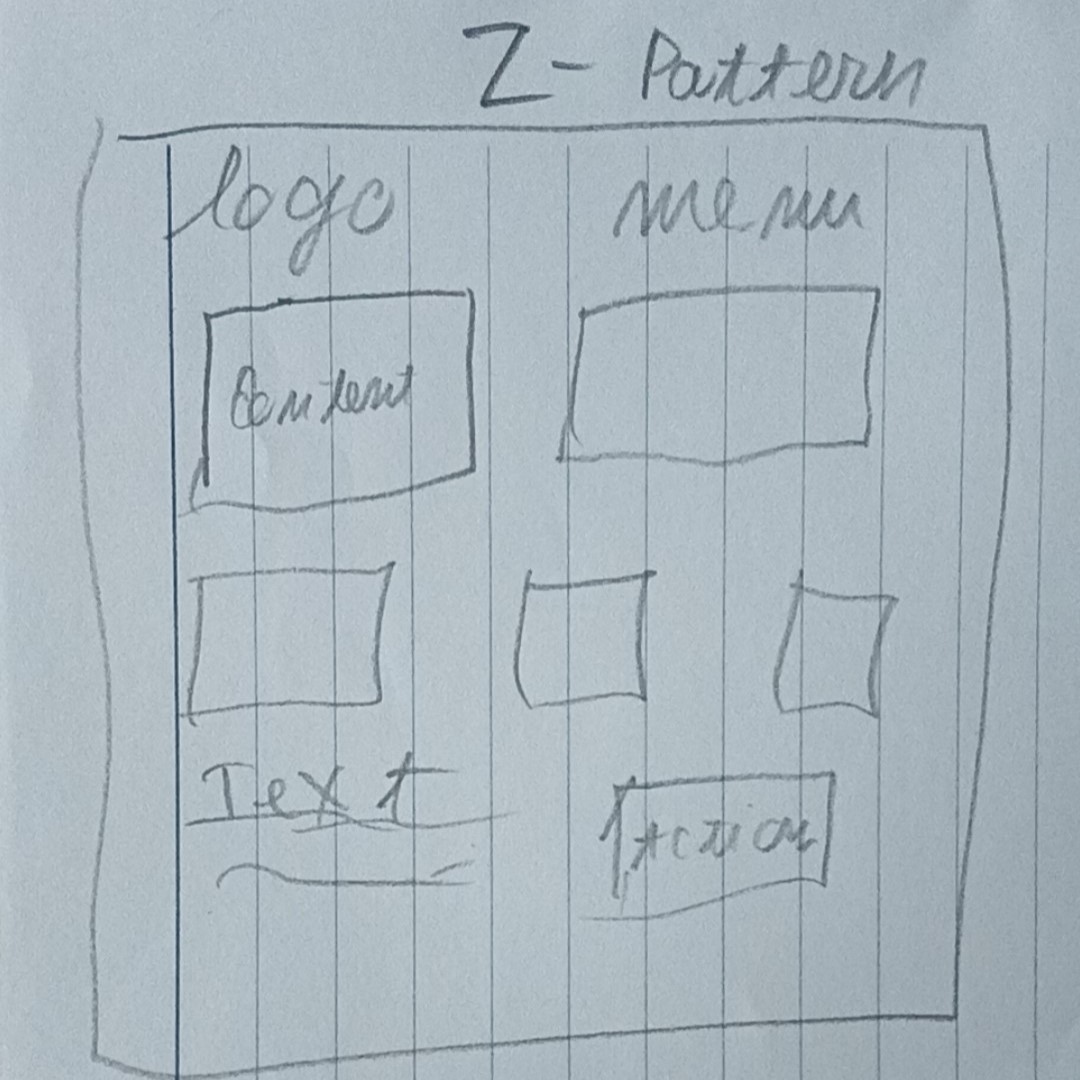 Z- Pattern
logo menu
Content
Text
Action